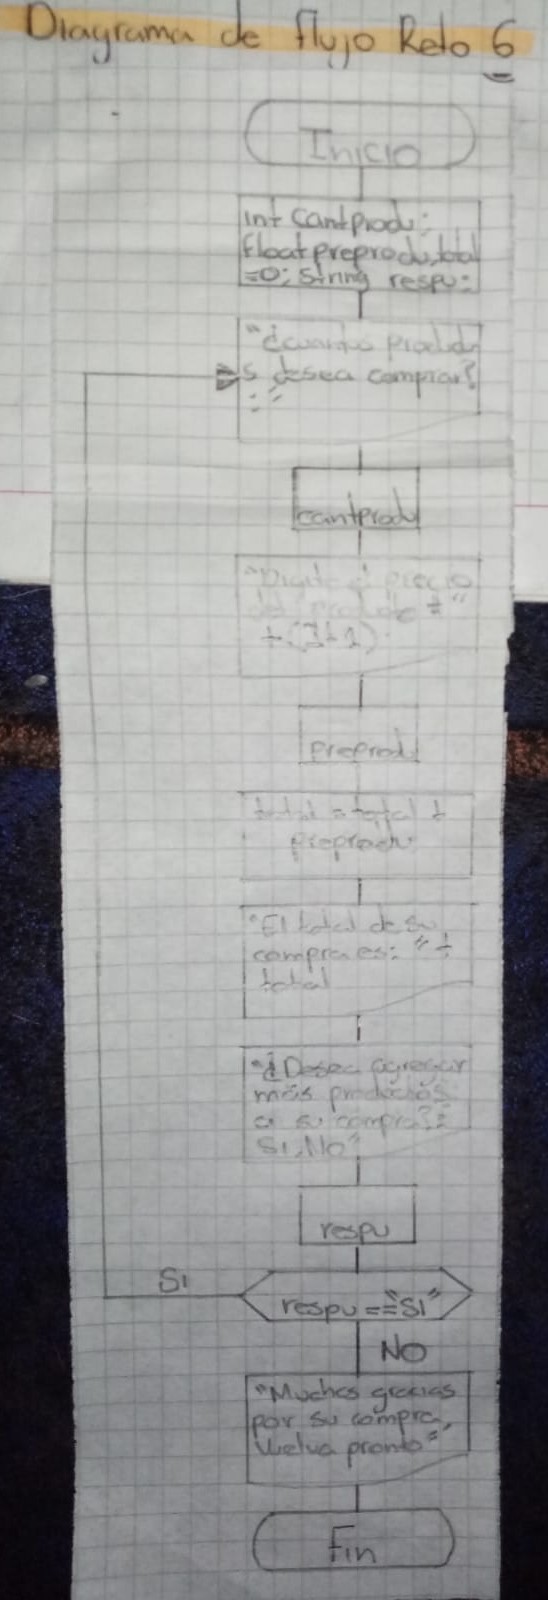 Diagrama de flujo Reto 6
Inicio
int cantprodu;
float preprodu, total
=0; string respu;
"¿cuantos producto
s desea comprar?
:"
cantprodu
"Digite el precio
del producto #"
+(I+1)
preprodu
total = total +
preprodu
"El total de su
compra es: " +
total
"¿Desea agregar
más productos
a su compra?:
SI, NO"
respu
SI
respu=="SI"
NO
"Muchas gracias
por su compra,
Vuelva pronto"
Fin